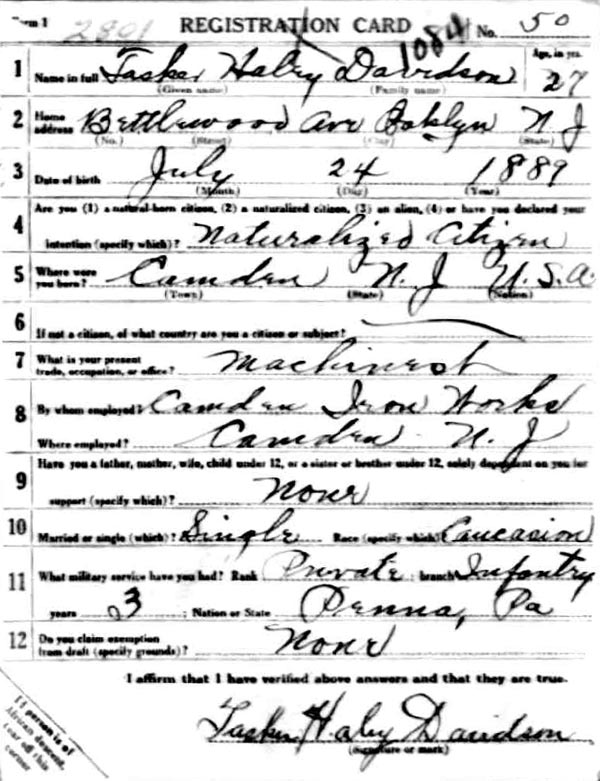 Form 1 2801 REGISTRATION CARD 1084 No. 50
1 Name in full Tasker Haley Davidson Age, in yrs. 27
(Given name) (Family name)
2 Home address Bettlewood Ave Oaklyn N J
(No.) (Street) (City) (State)
3 Date of birth July 24 1889
(Month) (Day) (Year)
4 Are you (1) a natural-born citizen, (2) a naturalized citizen, (3) an alien, (4) or have you declared your
intention (specify which)? Naturalized Citizen
5 Where were you born? Camden N. J U. S. A.
(Town) (State) (Nation)
6 If not a citizen, of what country are you a citizen or subject?
7 What is your present trade, occupation, or office? Machinest
8 By whom employed? Camden Iron Works
Where employed? Camden N. J
9 Have you a father, mother, wife, child under 12, or a sister or brother under 12, solely dependent on you for
support (specify which)? None
10 Married or single (which)? Single Race (specify which)? Caucasion
11 What military service have you had? Rank Private ; branch Infantry
years 3 ; Nation or State Penna, Pa
12 Do you claim exemption from draft (specify grounds)? None
I affirm that I have verified above answers and that they are true.
Tasker Haley Davidson
(Signature or mark)
If person is of
African descent,
tear off this
corner